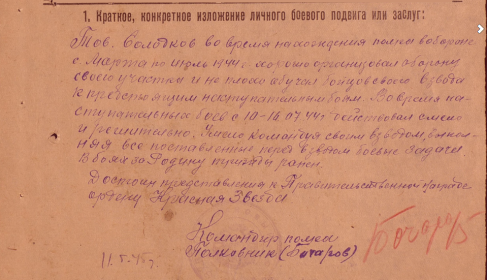 1. Краткое, конкретное изложение личного боевого подвига или заслуг:
Тов. Солодков во время нахождения полка в обороне
с Марта по Июль 1944. хорошо организовал оборону
своего участка и не плохо обучил бойцов своего взвода
к предстоящим наступательным боям. Во время на-
ступательных боев с 10-16.07.44г действовал смело
и решительно. Умело командуя своим взводом, выпол-
няя все поставленные перед взводом боевые задачи.
В боях за Родину трижды ранен.
Достоин представления к Правительственной награде
ордену Красная Звезда.
Командир полка
Полковник (Бочаров)
Бочаров
11.5.45г